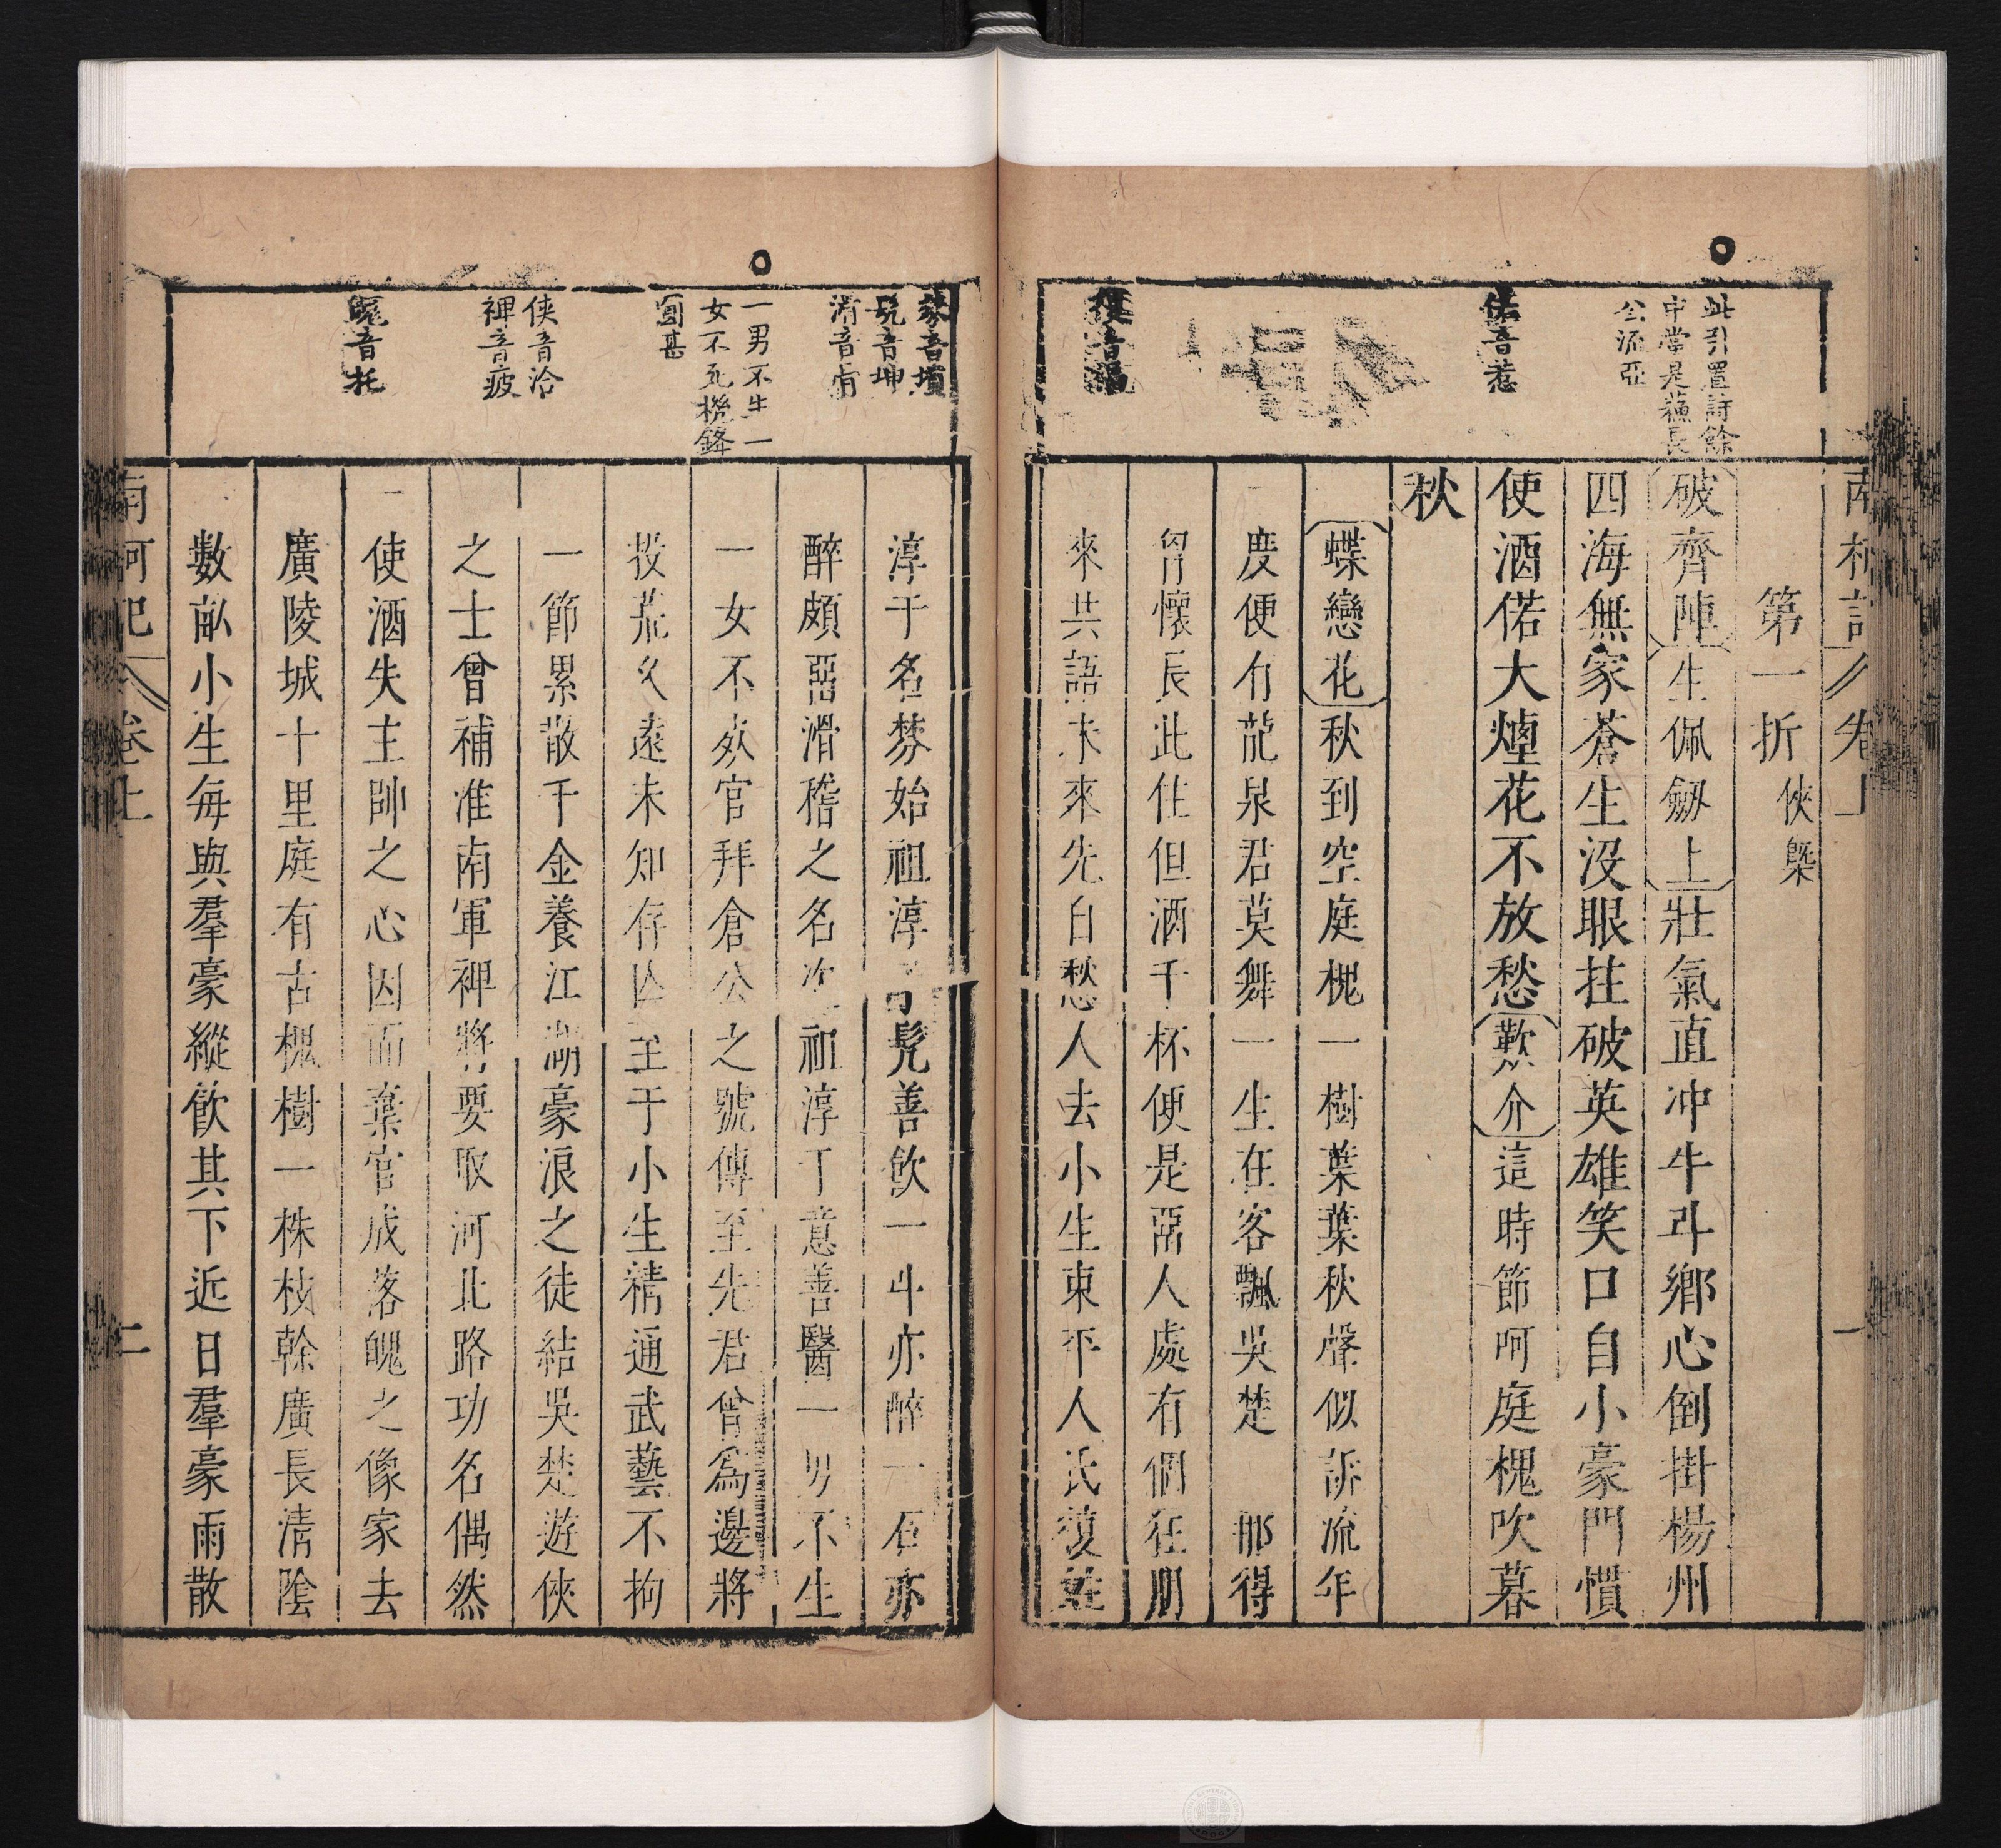 此引置詩餘
中當是蘇長
公流亞
偌音惹
複音福
南柯記 卷上 一
第一折 俠槩
破齊陣 生佩劒上 壯氣直冲牛斗鄉心倒掛楊州
四海無家蒼生没眼拄破英雄笑口自小豪門慣
使酒偌大煙花不放愁 歎介 這時節呵庭槐吹暮
秋
蝶戀花 秋到空庭槐一樹葉葉秋聲似訴流年
度便有龍泉君莫舞一生在客飄吳楚 那得
胷懷長此住但酒千杯便是留人處有個狂朋
來共語未來先自愁人去小生東平人氏複姓
棼音墳
髡音坤
滑音骨
一男不生一
女不死機鋒
圓甚
俠音洽
裨音疲
魄音托
淳于名棼始祖淳于髡善飲一斗亦醉一石亦
醉頗留滑稽之名次祖淳于意善醫一男不生
一女不死官拜倉公之號傳至先君曾爲邊將
投荒久遠未知存亡至于小生精通武藝不拘
一節累散千金養江湖豪浪之徒結吳楚遊俠
之士曾補淮南軍裨將要取河北路功名偶然
使酒失主帥之心因而棄官成落魄之像家去
廣陵城十里庭有古槐樹一株枝幹廣長清陰
數畝小生每與羣豪縱飲其下近日羣豪雨散
南柯記 卷上 二